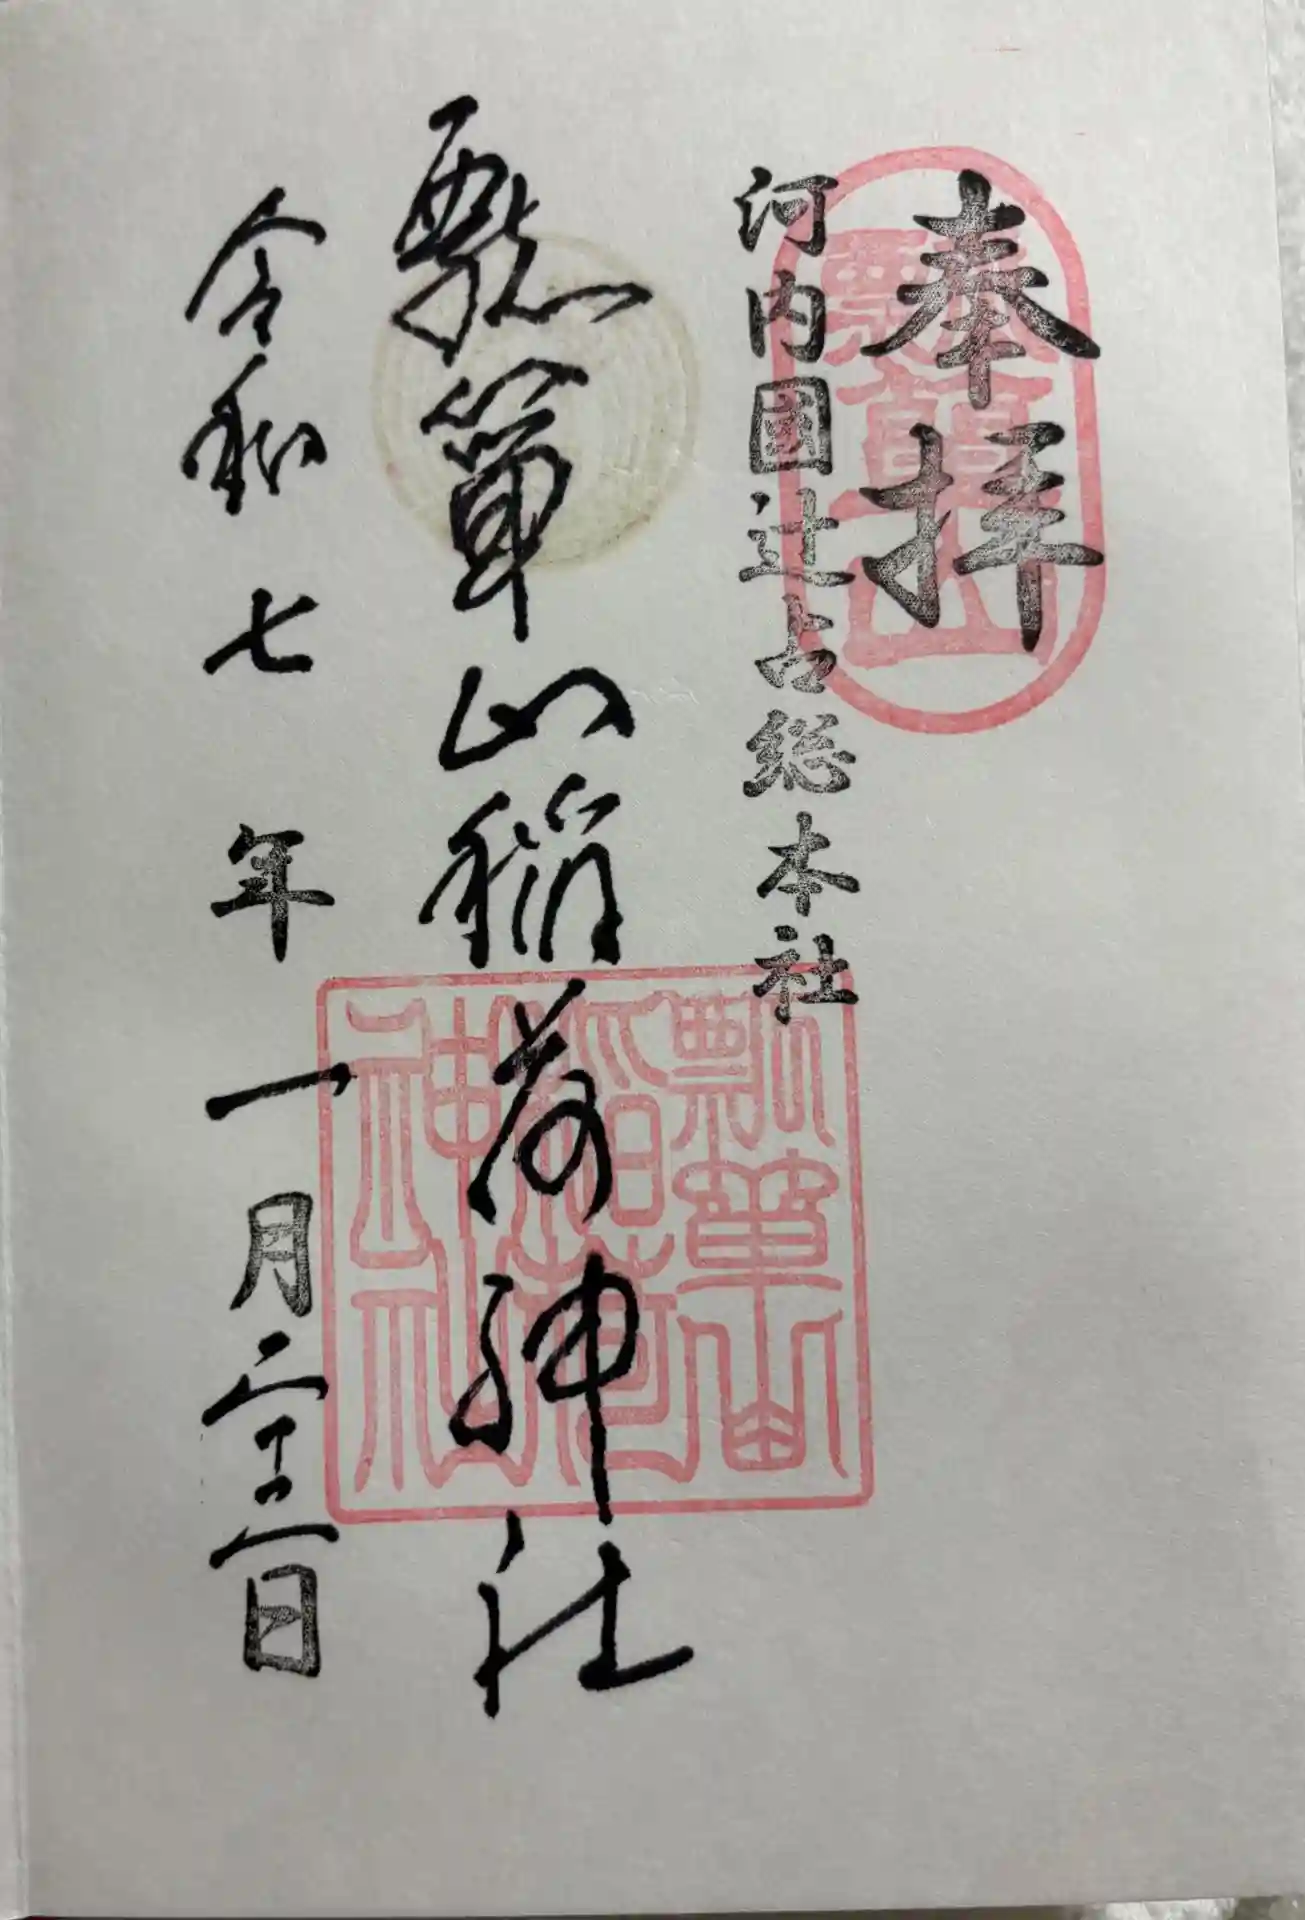 奉拝
瓢簞山
河内國辻占総本社
瓢簞山稲荷神社
瓢簞山
稲荷
神社
令和七年一月二十二日